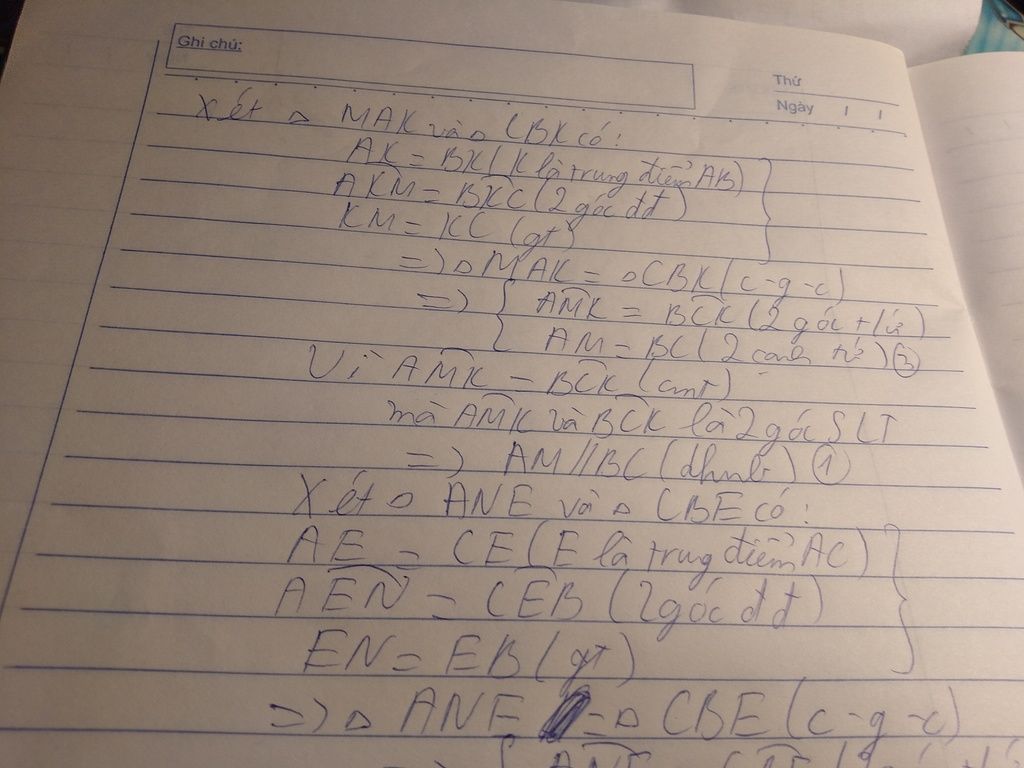 Ghi chú:
Thứ
Ngày / /
Xét △ MAK và △ CBK có:
AK = BK (K là trung điểm AB)
AKM = BKC (2 góc đđ)
KM = KC (gt)
=> △ MAK = △ CBK (c-g-c)
=> { AMK = BCK (2 góc tứ)
AM = BC (2 cạnh tứ) ③
Vì AMK = BCK (cmt)
mà AMK và BCK là 2 góc SLT
=> AM // BC (dhnb) ①
Xét △ ANE và △ CBE có:
AE = CE (E là trung điểm AC)
AEN = CEB (2 góc đđ)
EN = EB (gt)
=> △ ANE = △ CBE (c-g-c)